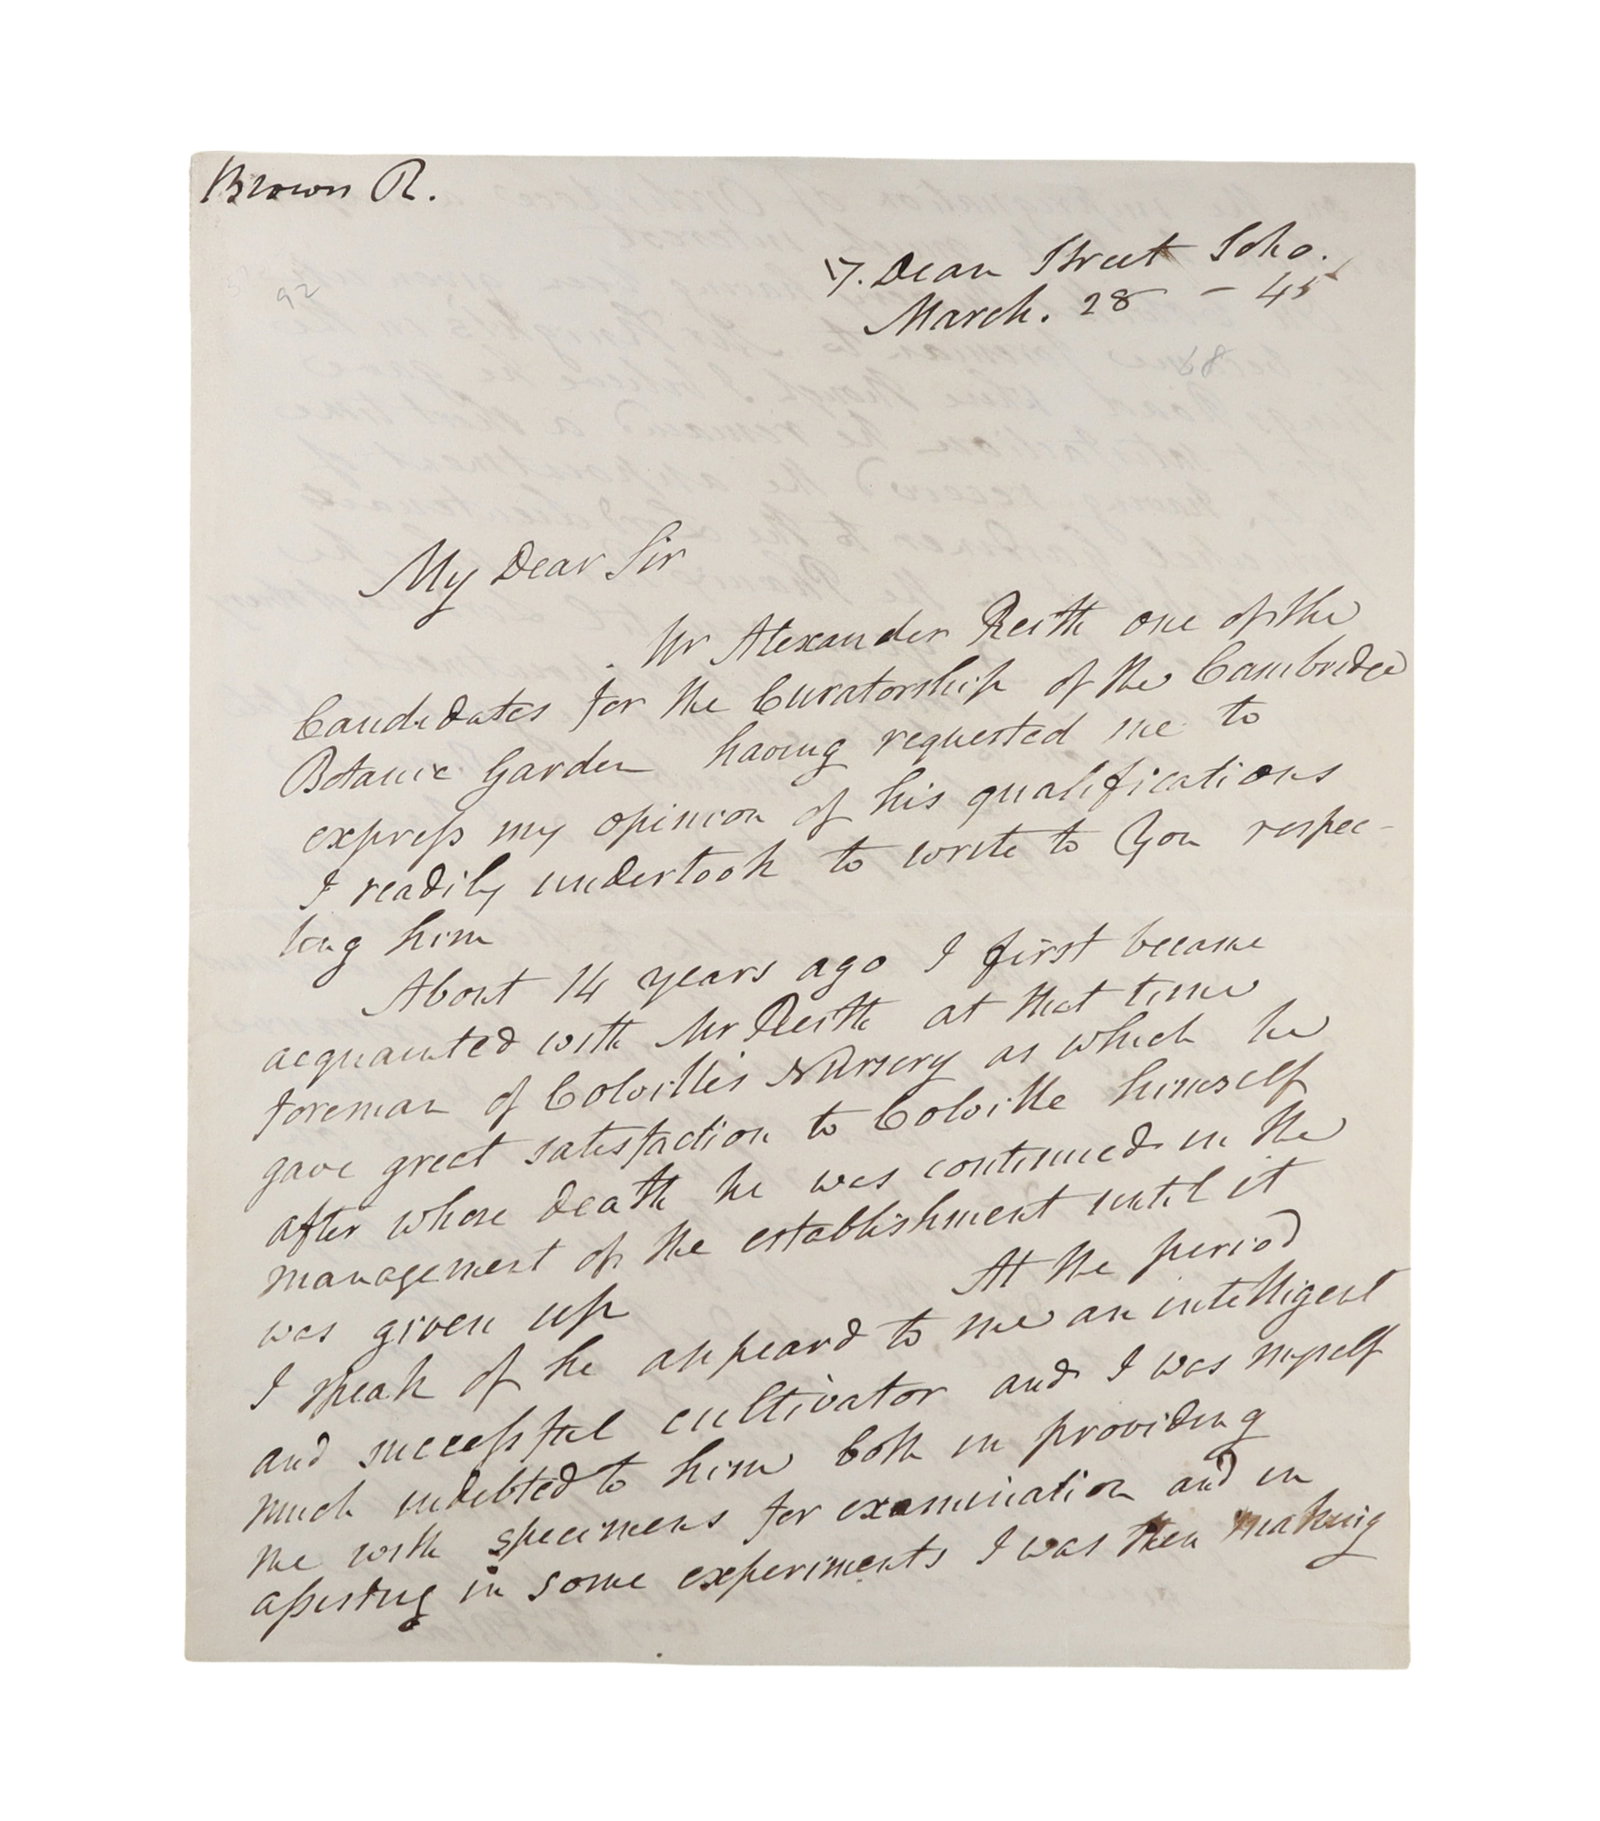 Brown R.
92
17. Dean Street Soho.
March. 28 - 45
68
My Dear Sir
Mr Alexander Reith one of the
Candidates for the Curatorship of the Cambridge
Botanic Garden having requested me to
express my opinion of his qualifications
I readily undertook to write to You respec-
ting him
About 14 years ago I first became
acquainted with Mr Reith at that time
foreman of Colville's Nursery as which he
gave great satisfaction to Colville himself
after whose death he was continued in the
management of the establishment until it
was given up At the period
I speak of he appeard to me an intelligent
and successful cultivator and I was myself
much indebted to him both in providing
me with specimens for examination and in
assisting in some experiments I was then making